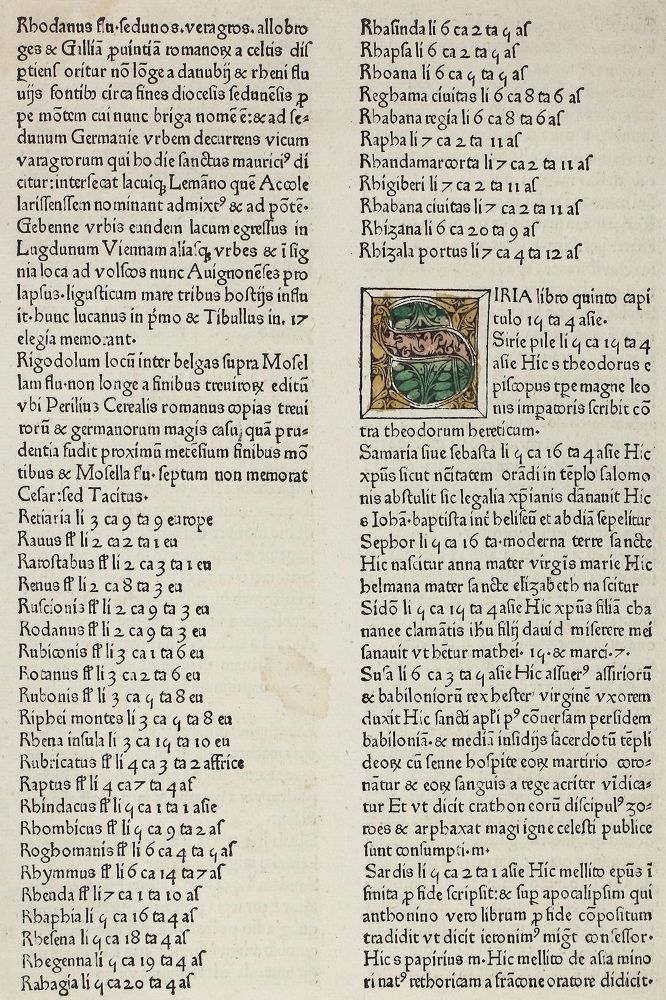 Rhodanus flu·sedunos. veragros. allobro
ges & Gilliã ꝓuintiã romanoꝝ a celtis diſ
ꝑtienſ oritur nõ lõge a danubij & rheni flu
uijs fontibꝰ circa fines diocesis sedunẽsis ꝓ
pe mõtem cui nunc briga nomẽ ẽ:& ad ſe-
dunum Germanie vrbem decurrens vicum
varagrorum qui hodie ſanctus mauriciꝰ di
citur:interſecat lacuiqꝫ Lemãno quẽ Accole
lariſſenſſem nominant admixtꝰ & ad põtẽ·
Gebenne vrbis eundem lacum egreſſus in
Lugdunum Viennam aliaſqꝫ vrbes & iſig
nia loca ad volſcos nunc Auignonẽſes pro
lapſus·liguſticum mare tribus hoſtijs influ
it·hunc lucanus in p̃mo & Tibullus in. 17
elegia memorant·
Rigodolum locũ inter belgas ſupra Moſel
lam flu·non longe a finibus treuiroꝝ editũ
vbi Perilius Cerealis romanus copias treui
rorũ & germanorum magis caſu quã pru-
dentia fudit proximũ metẽſium finibus mõ
tibus & Moſella flu· septum non memorat
Ceſar:ſed Tacitus·
Retiaria li 3 ca 9 ta 9 europe
Rauus fl' li 2 ca 2 ta 1 eu
Raroſtabus fl' li 2 ca 3 ta 1 eu
Renus fl' li 2 ca 8 ta 3 eu
Ruſcionis fl' li 2 ca 9 ta 3 eu
Rodanus fl' li 2 ca 9 ta 3 eu
Rubiconis fl' li 3 ca 1 ta 6 eu
Rotanus fl' li 3 ca 2 ta 6 eu
Rubonis fl' li 3 ca ꝗ ta 8 eu
Riphei montes li 3 ca ꝗ ta 8 eu
Rhena inſula li 3 ca 1ꝗ ta 10 eu
Rubricatus fl' li 4 ca 3 ta 2 affrice
Raptus fl' li 4 ca 7 ta 4 aſ
Rhindacus fl' li ꝗ ca 1 ta 1 aſie
Rhombicus fl' li ꝗ ca 9 ta 2 aſ
Roghomanis fl' li 6 ca 4 ta ꝗ aſ
Rhymmus fl' li 6 ca 14 ta 7 aſ
Rhenda fl' li 7 ca 1 ta 10 aſ
Rhaphia li ꝗ ca 16 ta 4 aſ
Rheſena li ꝗ ca 18 ta 4 aſ
Rhegenna li ꝗ ca 19 ta 4 aſ
Rabagia li ꝗ ca 20 ta 4 aſ
Rhaſinda li 6 ca 2 ta ꝗ aſ
Rhapſa li 6 ca 2 ta ꝗ aſ
Rhoana li 6 ca ꝗ ta ꝗ aſ
Reghama ciuitas li 6 ca 8 ta 6 aſ
Rhabana regia li 6 ca 8 ta 6 aſ
Rapha li 7 ca 2 ta 11 aſ
Rhandamarcorta li 7 ca 2 ta 11 aſ
Rhigiberi li 7 ca 2 ta 11 aſ
Rhabana ciuitas li 7 ca 2 ta 11 aſ
Rhizana li 6 ca 20 ta 9 aſ
Rhizala portus li 7 ca 4 ta 12 aſ
SIRIA libro quinto capi
tulo 1ꝗ ta 4 aſie·
Sirie pile li ꝗ ca 1ꝗ ta 4
aſie Hic s theodorus e
piſcopus tꝑe magne leo
nis imꝑatoris ſcribit cõ
tra theodorum hereticum·
Samaria ſiue ſebaſta li ꝗ ca 16 ta 4 aſie Hic
xp̃us ſicut nc̃itatem orãdi in tẽplo ſalomo
nis abſtulit ſic legalia xp̃ianis dãnauit Hic
s Iohã·baptiſta int' heliſeũ et abdiã ſepelitur
Sephor li ꝗ ca 16 ta·moderna terre ſancte
Hic naſcitur anna mater virgĩs marie Hic
helmana mater ſancte elizabeth naſcitur
Sidõ li ꝗ ca 1ꝗ ta 4 aſie Hic xp̃us filiã cha
nanee clamãtis ihu filij dauid miſerere mei
ſanauit vt hẽtur mathei· 1ꝗ· & marci·7·
Suſa li 6 ca 3 ta ꝗ aſie Hic aſſuerꝰ aſſiriorũ
& babiloniorũ rex heſter virginẽ vxorem
duxit Hic ſancti apl'i pꝰ cõuerſam perſidem
babiloniã·& mediã inſidijs ſacerdotũ tẽpli
deoꝝ cũ ſenne hoſpite eoꝝ martirio coro-
nãtur & eoꝝ ſanguis a rege acriter vĩdica-
tur Et vt dicit crathon eorũ diſcipulꝰ zo-
roes & arphaxat magi igne celeſti publice
ſunt conſumpti·m·
Sardis li ꝗ ca 2 ta 1 aſie Hic mellito ep̃us ĩ
finita ꝓ fide ſcripſit:& ſuꝑ apocalipſim qui
anthonino vero librum ꝓ fide cõpoſitum
tradidit vt dicit ieronimꝰ mig̃t confeſſor·
Hic s papirius m·Hic mellito de aſia mino
ri natꝰ rethoricam a frãcone oratore didicit·